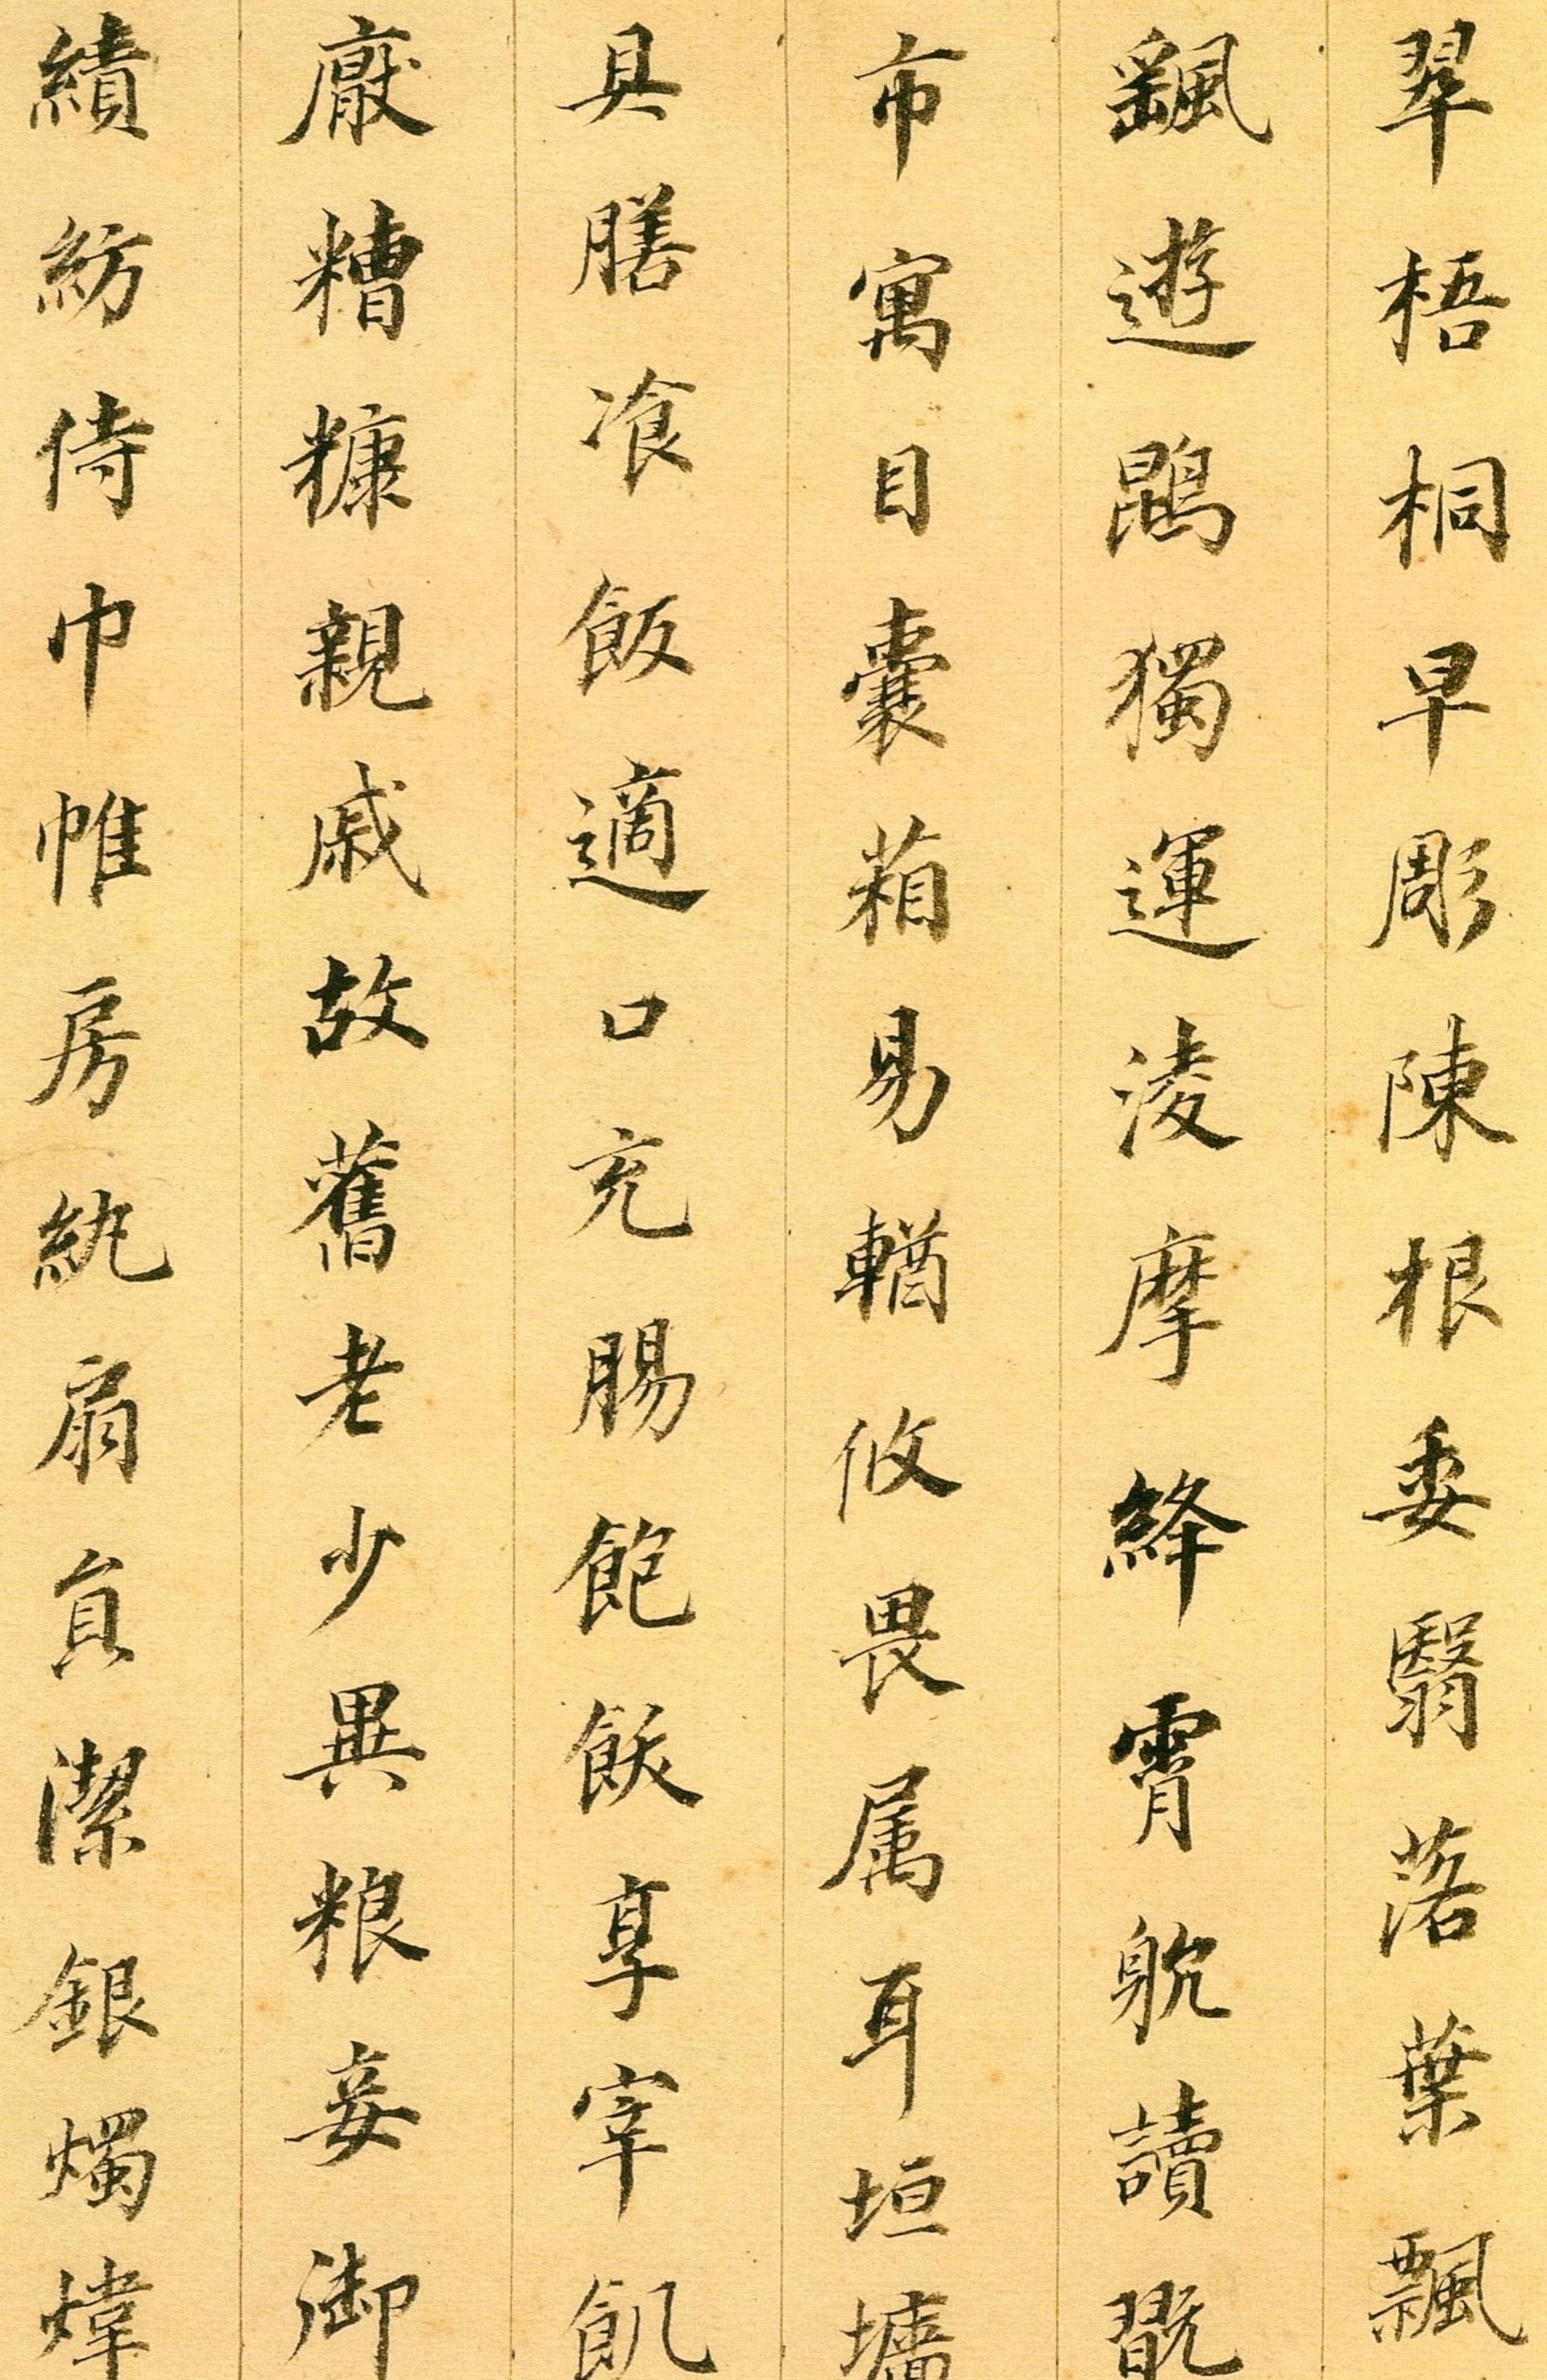 翠梧桐早彫陳根委翳落葉飄
飖遊鵾獨運淩摩絳霄躭讀翫
市寓目囊葙易輶攸畏属耳垣墻
具膳飡飯適口充腸飽飫享宰飢
厭糟糠親戚故舊老少異粮妾御
績紡侍巾帷房紈扇員潔銀燭煒